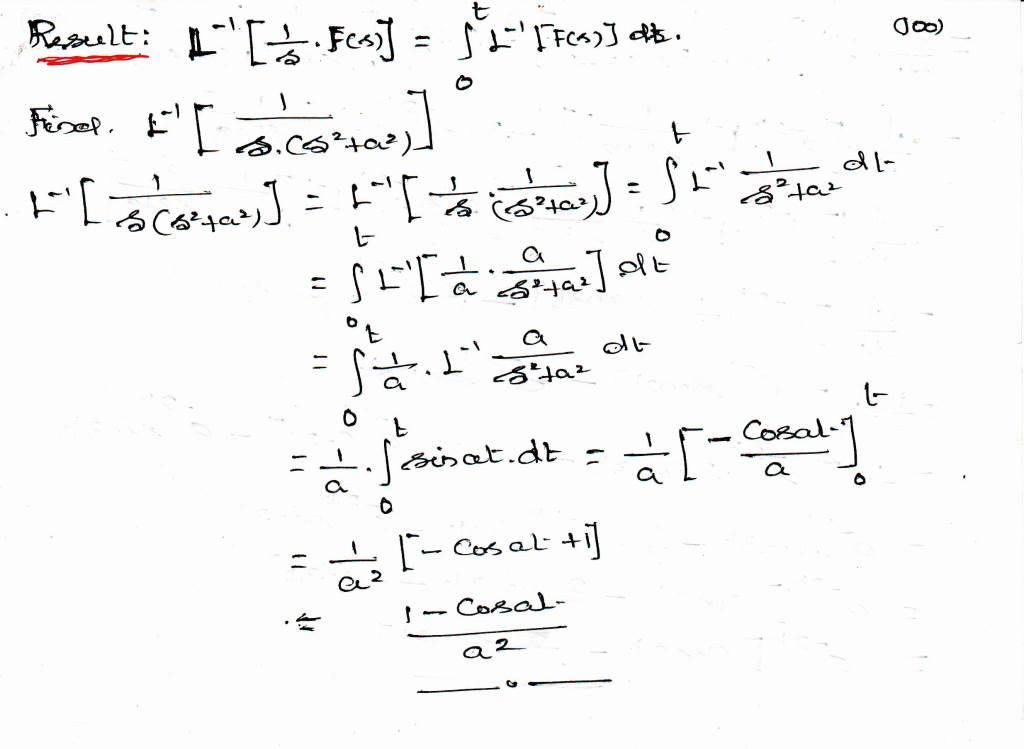 Result: L⁻¹[1/s · F(s)] = ∫₀ᵗ L⁻¹[F(s)] dt. (100)
Find. L⁻¹[1/(s.(s²+a²))]
L⁻¹[1/(s(s²+a²))] = L⁻¹[1/s · 1/(s²+a²)] = ∫₀ᵗ L⁻¹ 1/(s²+a²) dt
= ∫₀ᵗ L⁻¹[1/a · a/(s²+a²)] dt
= ∫₀ᵗ 1/a · L⁻¹ a/(s²+a²) dt
= 1/a · ∫₀ᵗ sin at. dt = 1/a [- Cos at/a]₀ᵗ
= 1/a² [- Cos at + 1]
= (1 - Cos at)/a²